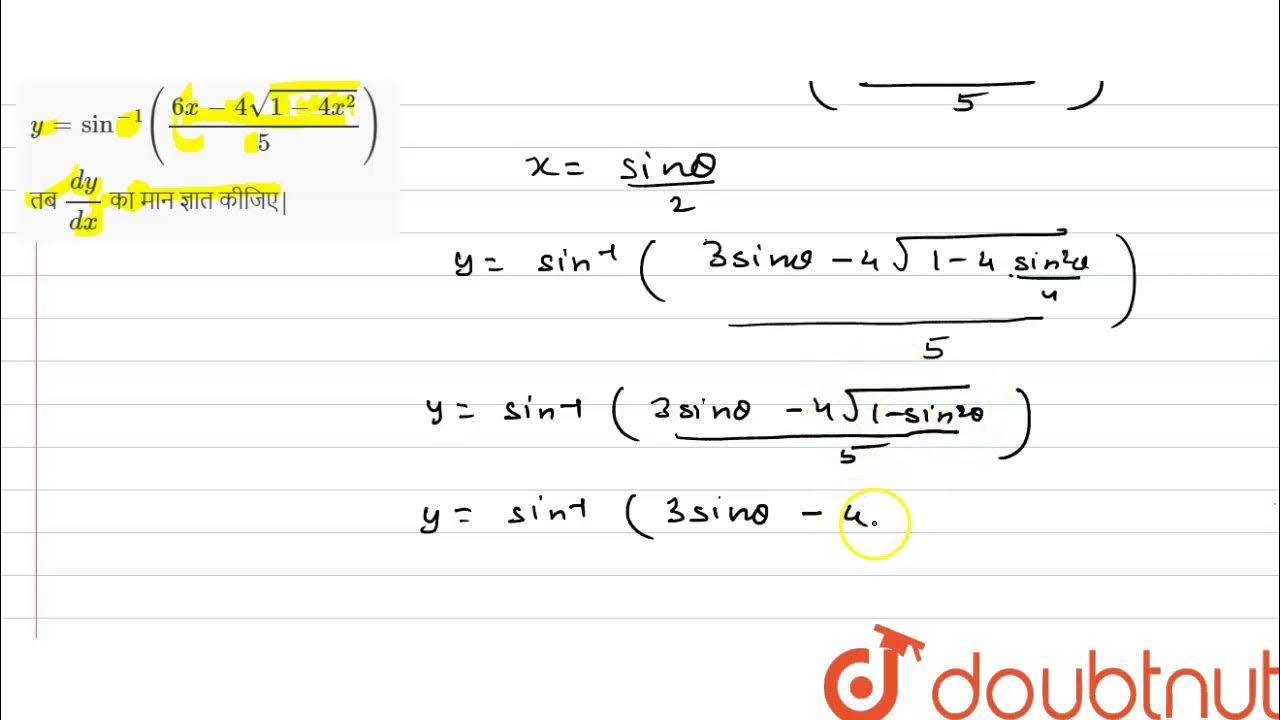 y = sin⁻¹((6x − 4√(1 − 4x²))/5)
तब dy/dx का मान ज्ञात कीजिए|
( /5 )
x = sinθ/2
y = sin⁻¹ ( (3sinθ − 4√(1 − 4 . sin²θ/4))/5 )
y = sin⁻¹ ( (3sinθ − 4√(1−sin²θ))/5 )
y = sin⁻¹ ( 3sinθ − 4.
doubtnut